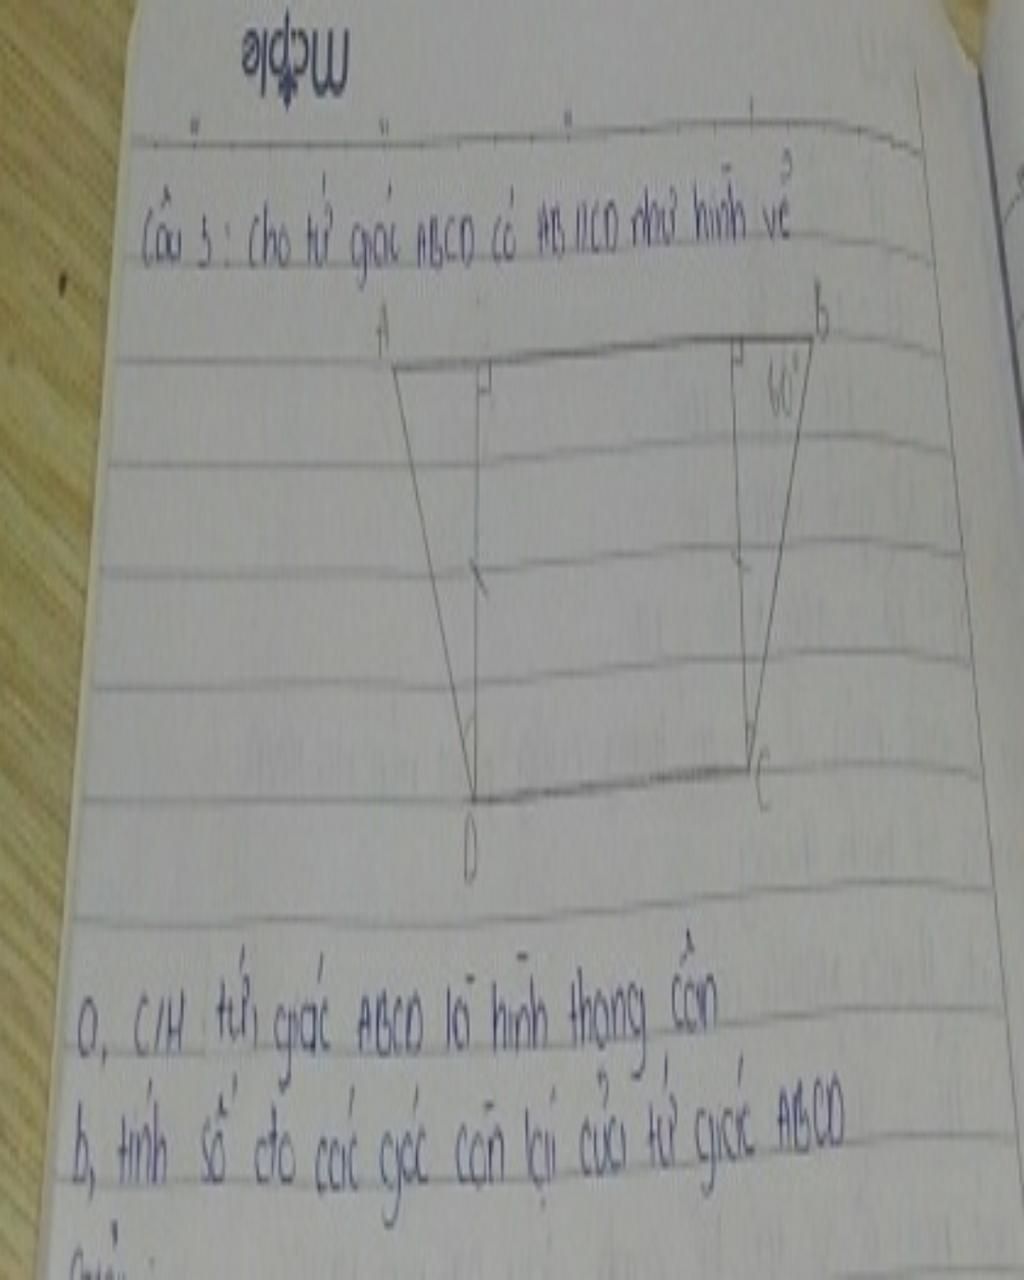 maple
Câu 5: Cho tứ giác ABCD có AB//CD như hình vẽ
A
B
60°
D
C
a, C/M tứ giác ABCD là hình thang cân
b, tính số đo các góc còn lại của tứ giác ABCD